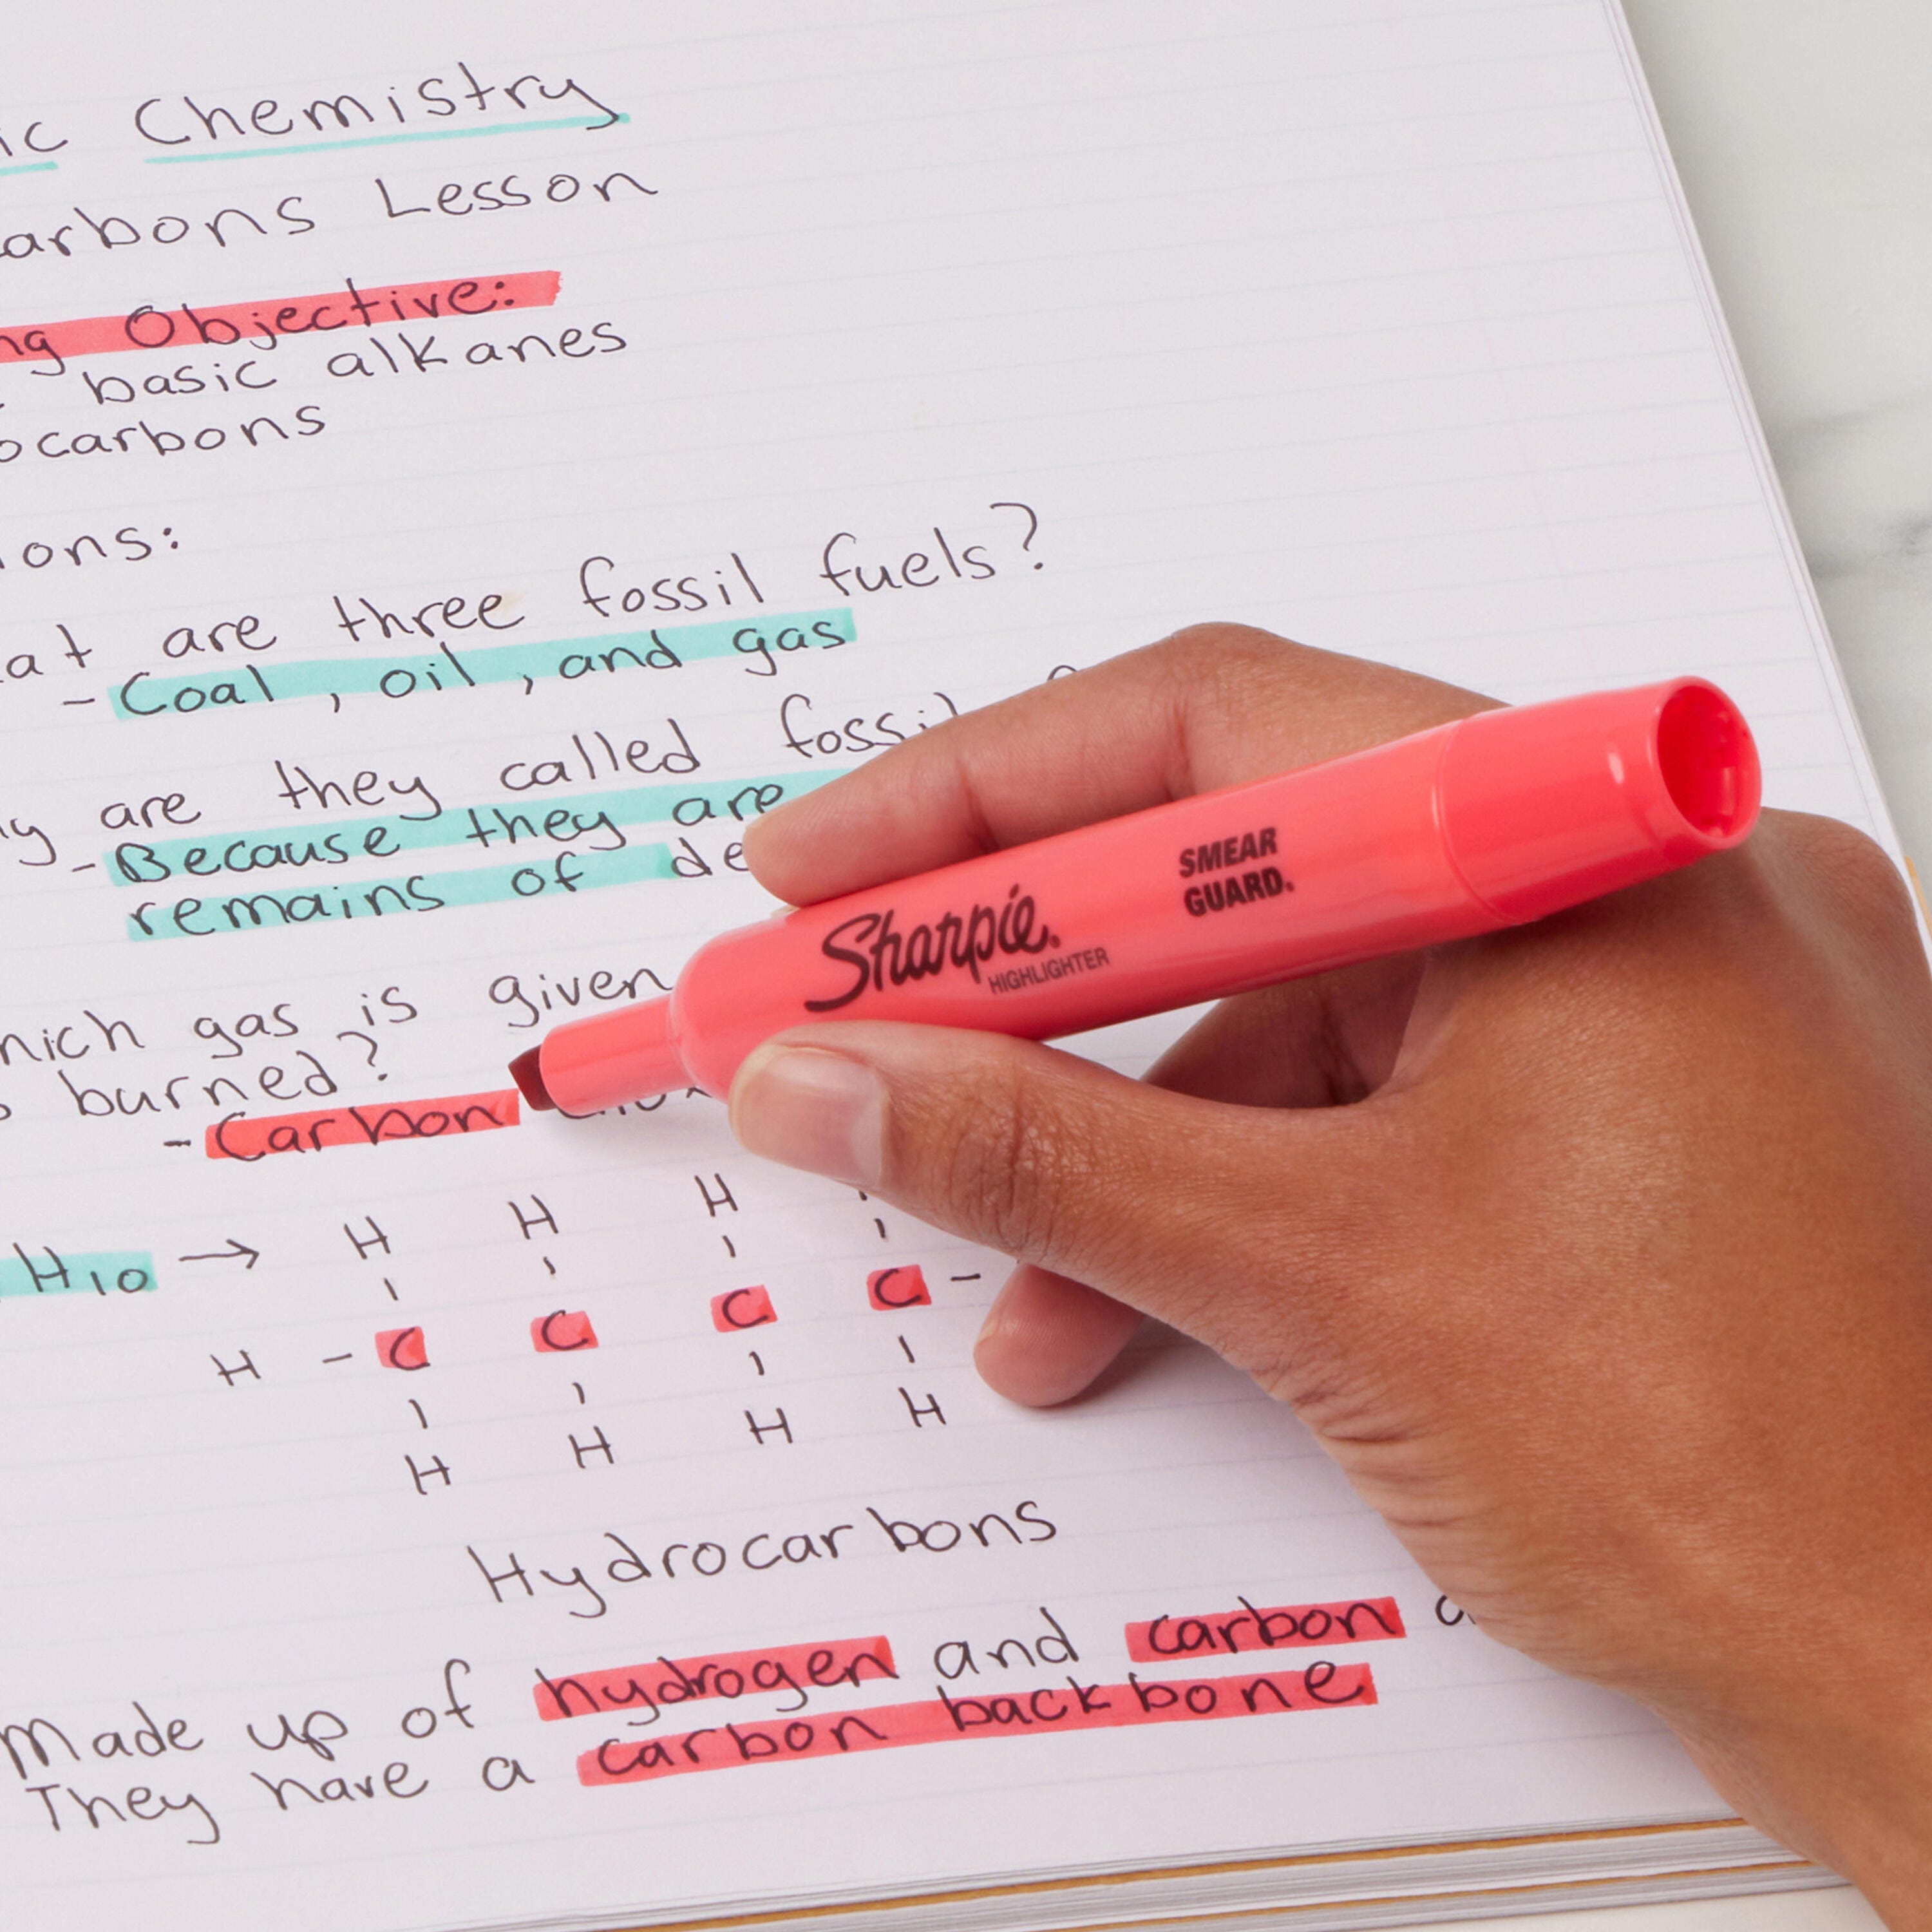 Chemistry
Lesson
Objective:
basic alkanes
ons:
are three fossil fuels?
- Coal, oil, and gas
are they called
- Because they are
remains of
gas is given
burned?
- Carbon
H H H
H10 →
H - C C C C -
H H H H
Hydrocarbons
Made up of hydrogen and carbon
They have a carbon backbone
Sharpie®
HIGHLIGHTER
SMEAR
GUARD®